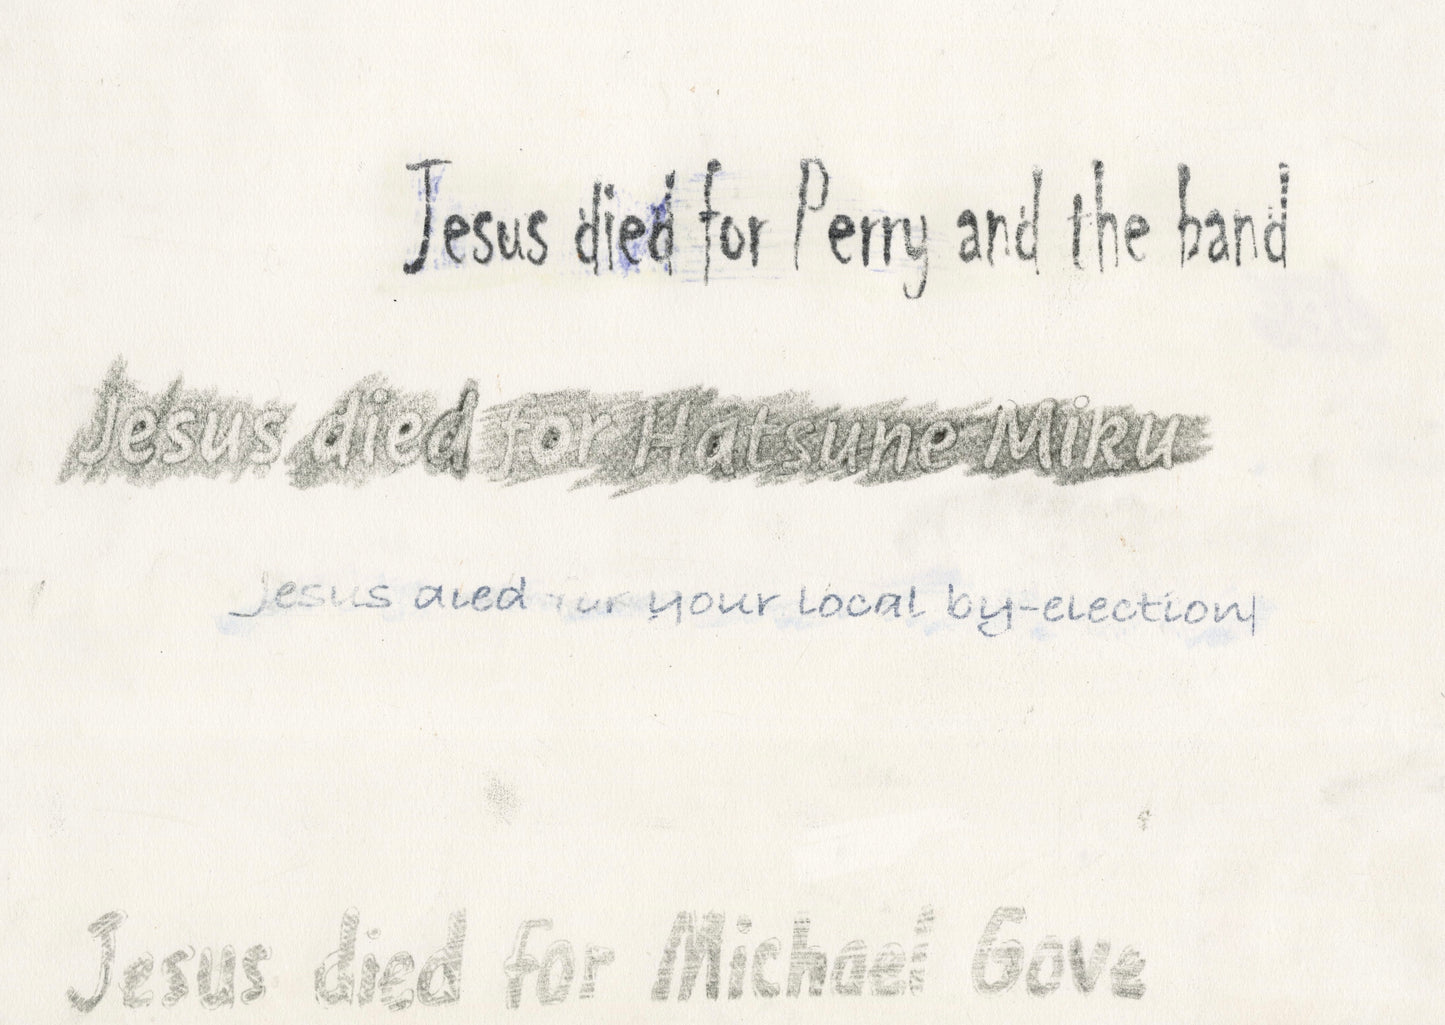 Jesus died for Perry and the band
Jesus died for Hatsune Miku
Jesus died for your local by-election
Jesus died for Michael Gove